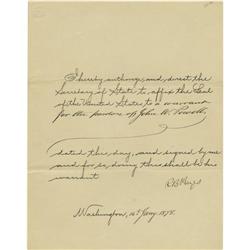 I hereby authorize and direct the
Secretary of State to affix the Seal
of the United States to a warrant
for the pardon of John W. Powell,
dated this day, and signed by me
and for so doing this shall be his
warrant
R B Hayes
Washington, 16th Jany. 1878.